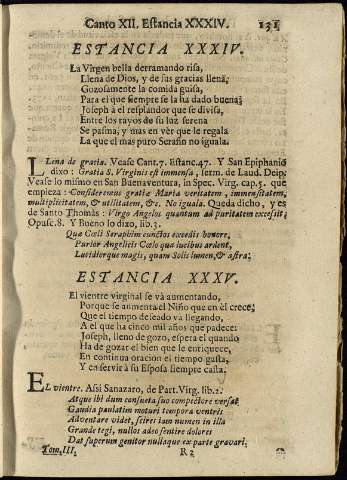 Canto XII. Estancia XXXIV. 131
ESTANCIA XXXIV.
La Virgen bella derramando risa,
Llena de Dios, y de sus gracias llena,
Gozosamente la comida guisa,
Para el que siempre se la ha dado buena;
Joseph à el resplandor que se divisa,
Entre los rayos de su luz serena
Se pasma, y mas en vèr que le regala
La que el mas puro Serafin no iguala.
LLena de gratia. Vease Cant.7. Estanc.47. Y San Epiphanio
dixo: Gratia S. Virginis est immensa, serm. de Laud. Deip.
Vease lo mismo en San Buenaventura, in Spec. Virg. cap.5. que
empieza: Consideremus gratia Maria veritatem, immensitatem,
multiplicitatem, & utilitatem, &c. No iguala. Queda dicho, y es
de Santo Thomàs: Virgo Angelos quantum ad puritatem excessit,
Opusc.8. Y Bueno lo dixo, lib.3.
Quæ Cœli Seraphim cunctos excedis honore,
Purior Angelicis Cœlo quæ lucibus ardent,
Lucidiorque magis, quam Solis lumen, & astra.
ESTANCIA XXXV.
El vientre virginal se và aumentando,
Porque se aumenta el Niño que en èl crece,
Que el tiempo deseado va llegando,
A el que ha cinco mil años que padece:
Joseph, lleno de gozo, espera el quando
Ha de gozar el bien que le enriquece,
En continua oracion el tiempo gasta,
Y en servir à su Esposa siempre casta.
EL vientre. Assi Sanazaro, de Part. Virg. lib.2.
Atque ibi dum consueta suo compectore versat
Gaudia paulatim moturi tempora ventris
Adventare videt, scires iam numen in illa
Grande tegi, nullos adeo sentire dolores
Dat superum genitor nullaque ex parte gravari;
Tom. III. R 2